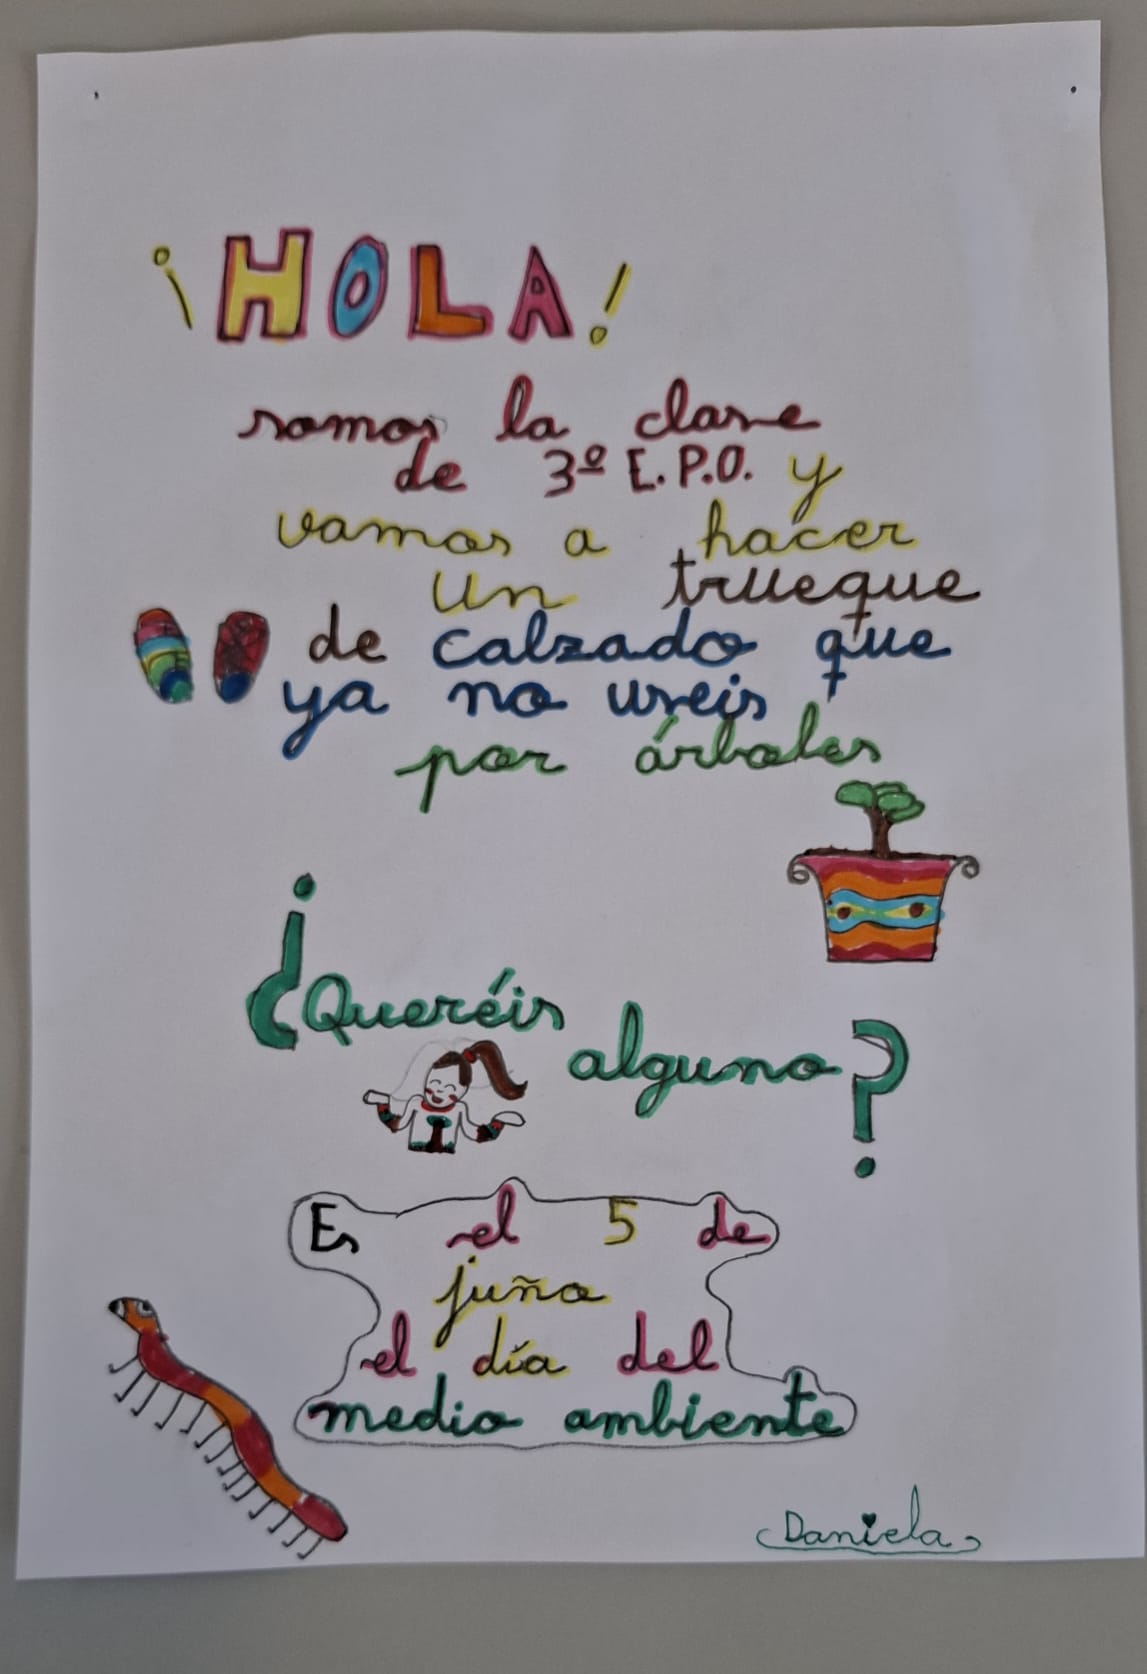 ¡HOLA!
somos la clase
de 3º E.P.O. y
vamos a hacer
un trueque
de calzado que
ya no useis
por árboles
¿Queréis
alguno?
Es el 5 de
juño
el día del
medio ambiente
Daniela